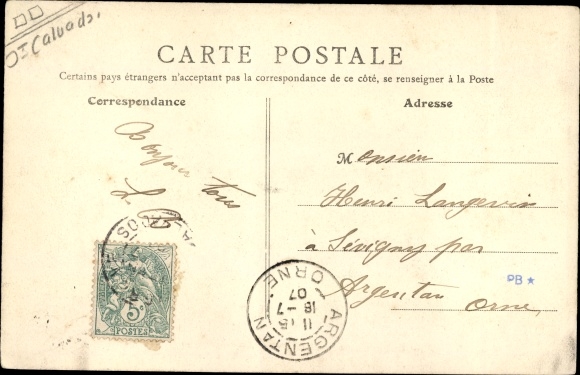 Dt Calvados
CARTE POSTALE
Certains pays étrangers n'acceptant pas la correspondance de ce côté, se renseigner à la Poste
Correspondance
Adresse
Bonjour
tous
L B
Monsieur
Henri Langevin
à Sévigny par
Argentan
Orne
PB★
5c
POSTES
ARGENTAN
ORNE
11 15
18 -7
07